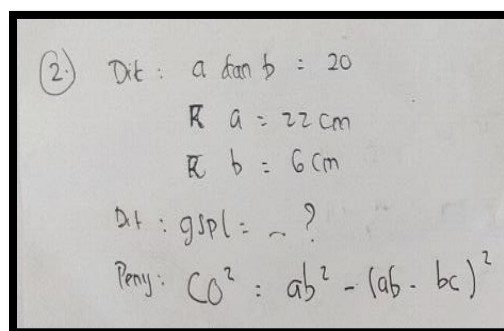 2. Dit : a dan b = 20
R a = 22 cm
R b = 6 cm
Dit : gspl = ~ ?
Peny : CO² = ab² - (ab - bc)²